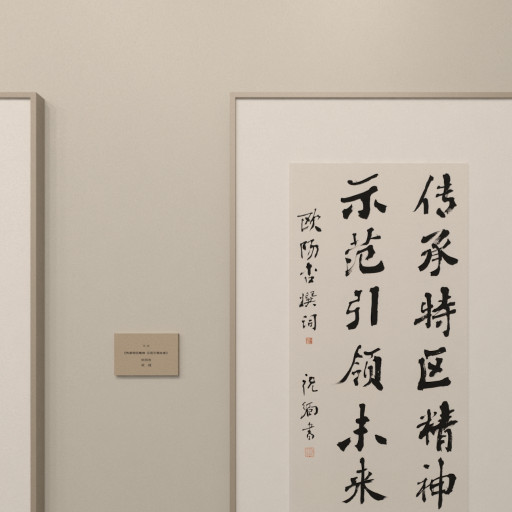 传承特区精神
示范引领未来
欧阳杏撰词
祝
书